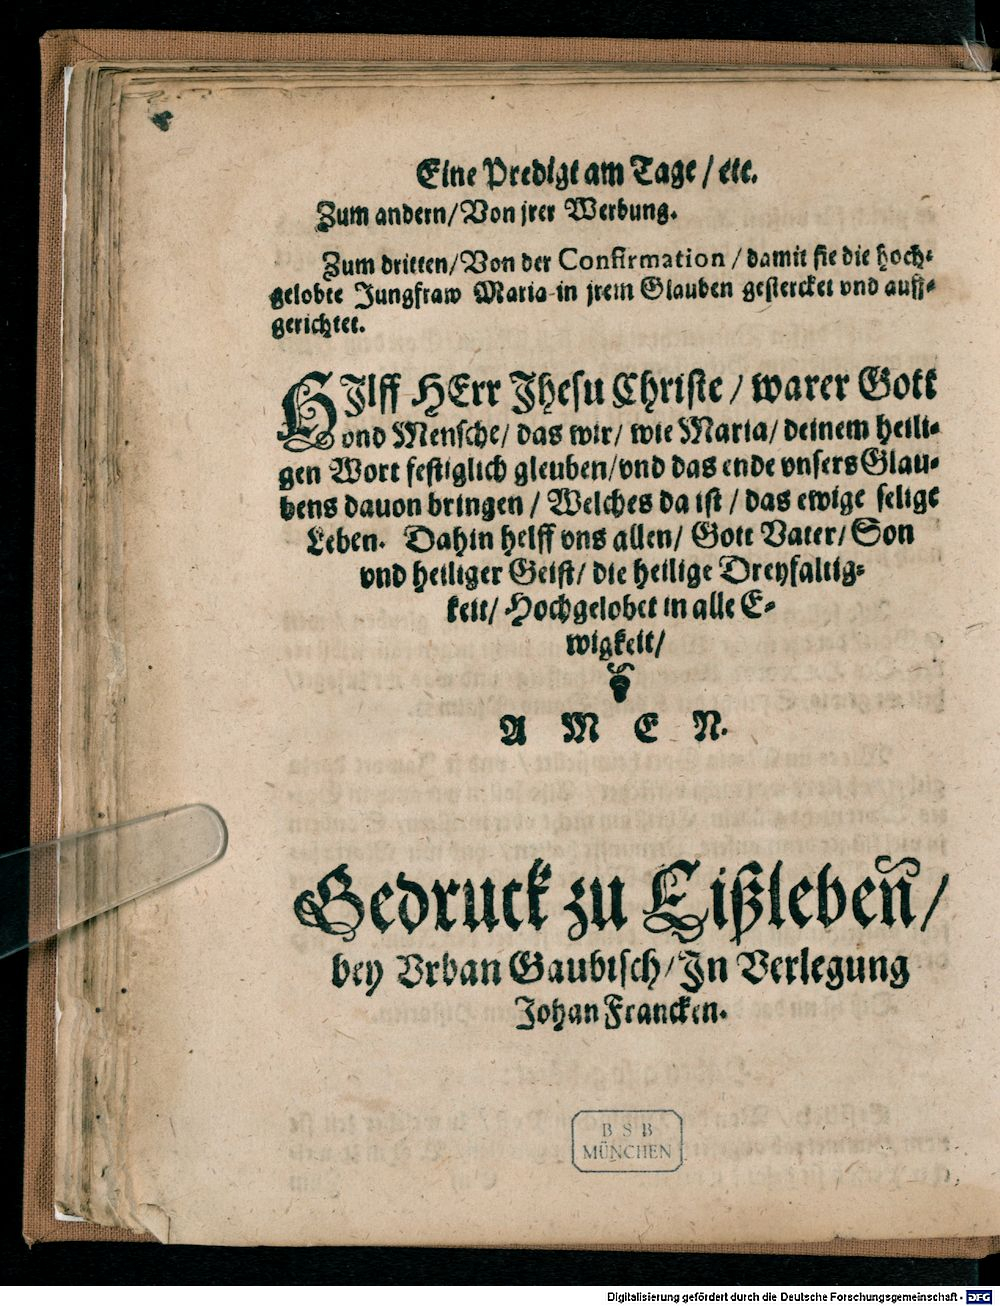 Eine Predigt am Tage / etc.
Zum andern / Von jrer Werbung.
Zum dritten / Von der Confirmation / damit sie die hoch-
gelobte Jungfraw Maria in jrem Glauben gestercket vnd auff-
gerichtet.
HIlff HErr Jhesu Christe / warer Gott
vnd Mensche / das wir / wie Maria / deinem heili-
gen Wort festiglich gleuben / vnd das ende vnsers Glau-
bens dauon bringen / Welches da ist / das ewige selige
Leben. Dahin helff vns allen / Gott Vater / Son
vnd heiliger Geist / die heilige Dreyfaltig-
keit / Hochgelobet in alle E-
wigkeit /
A M E N.
Gedruckt zu Eißleben /
bey Vrban Gaubisch / In Verlegung
Johan Francken.
B S B
MÜNCHEN
Digitalisierung gefördert durch die Deutsche Forschungsgemeinschaft - DFG